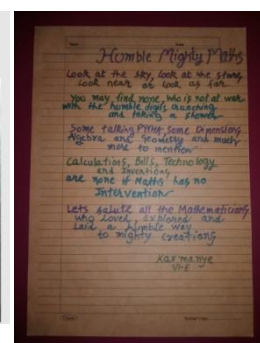 Humble Mighty Maths
Look at the sky, Look at the stars
Look near or Look as far
You may find none, who is not at war
with the humble digits crunching
and taking a shower
Some talking some Dimensions
Algebra and Geometry and much
more to mention
Calculations, Bills, Technology
and Inventions
are none if Maths has no
Intervention
Lets salute all the Mathematicians
who Loved, explored and
Laid a humble way
to mighty creations
Karmanye